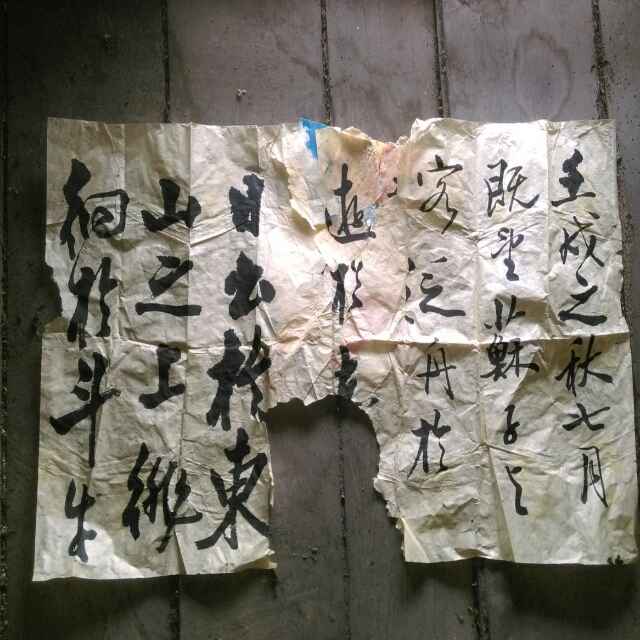 壬戌之秋七月
既望蘇子与
客泛舟於
遊於
月出於東
山之上徘
徊於斗牛